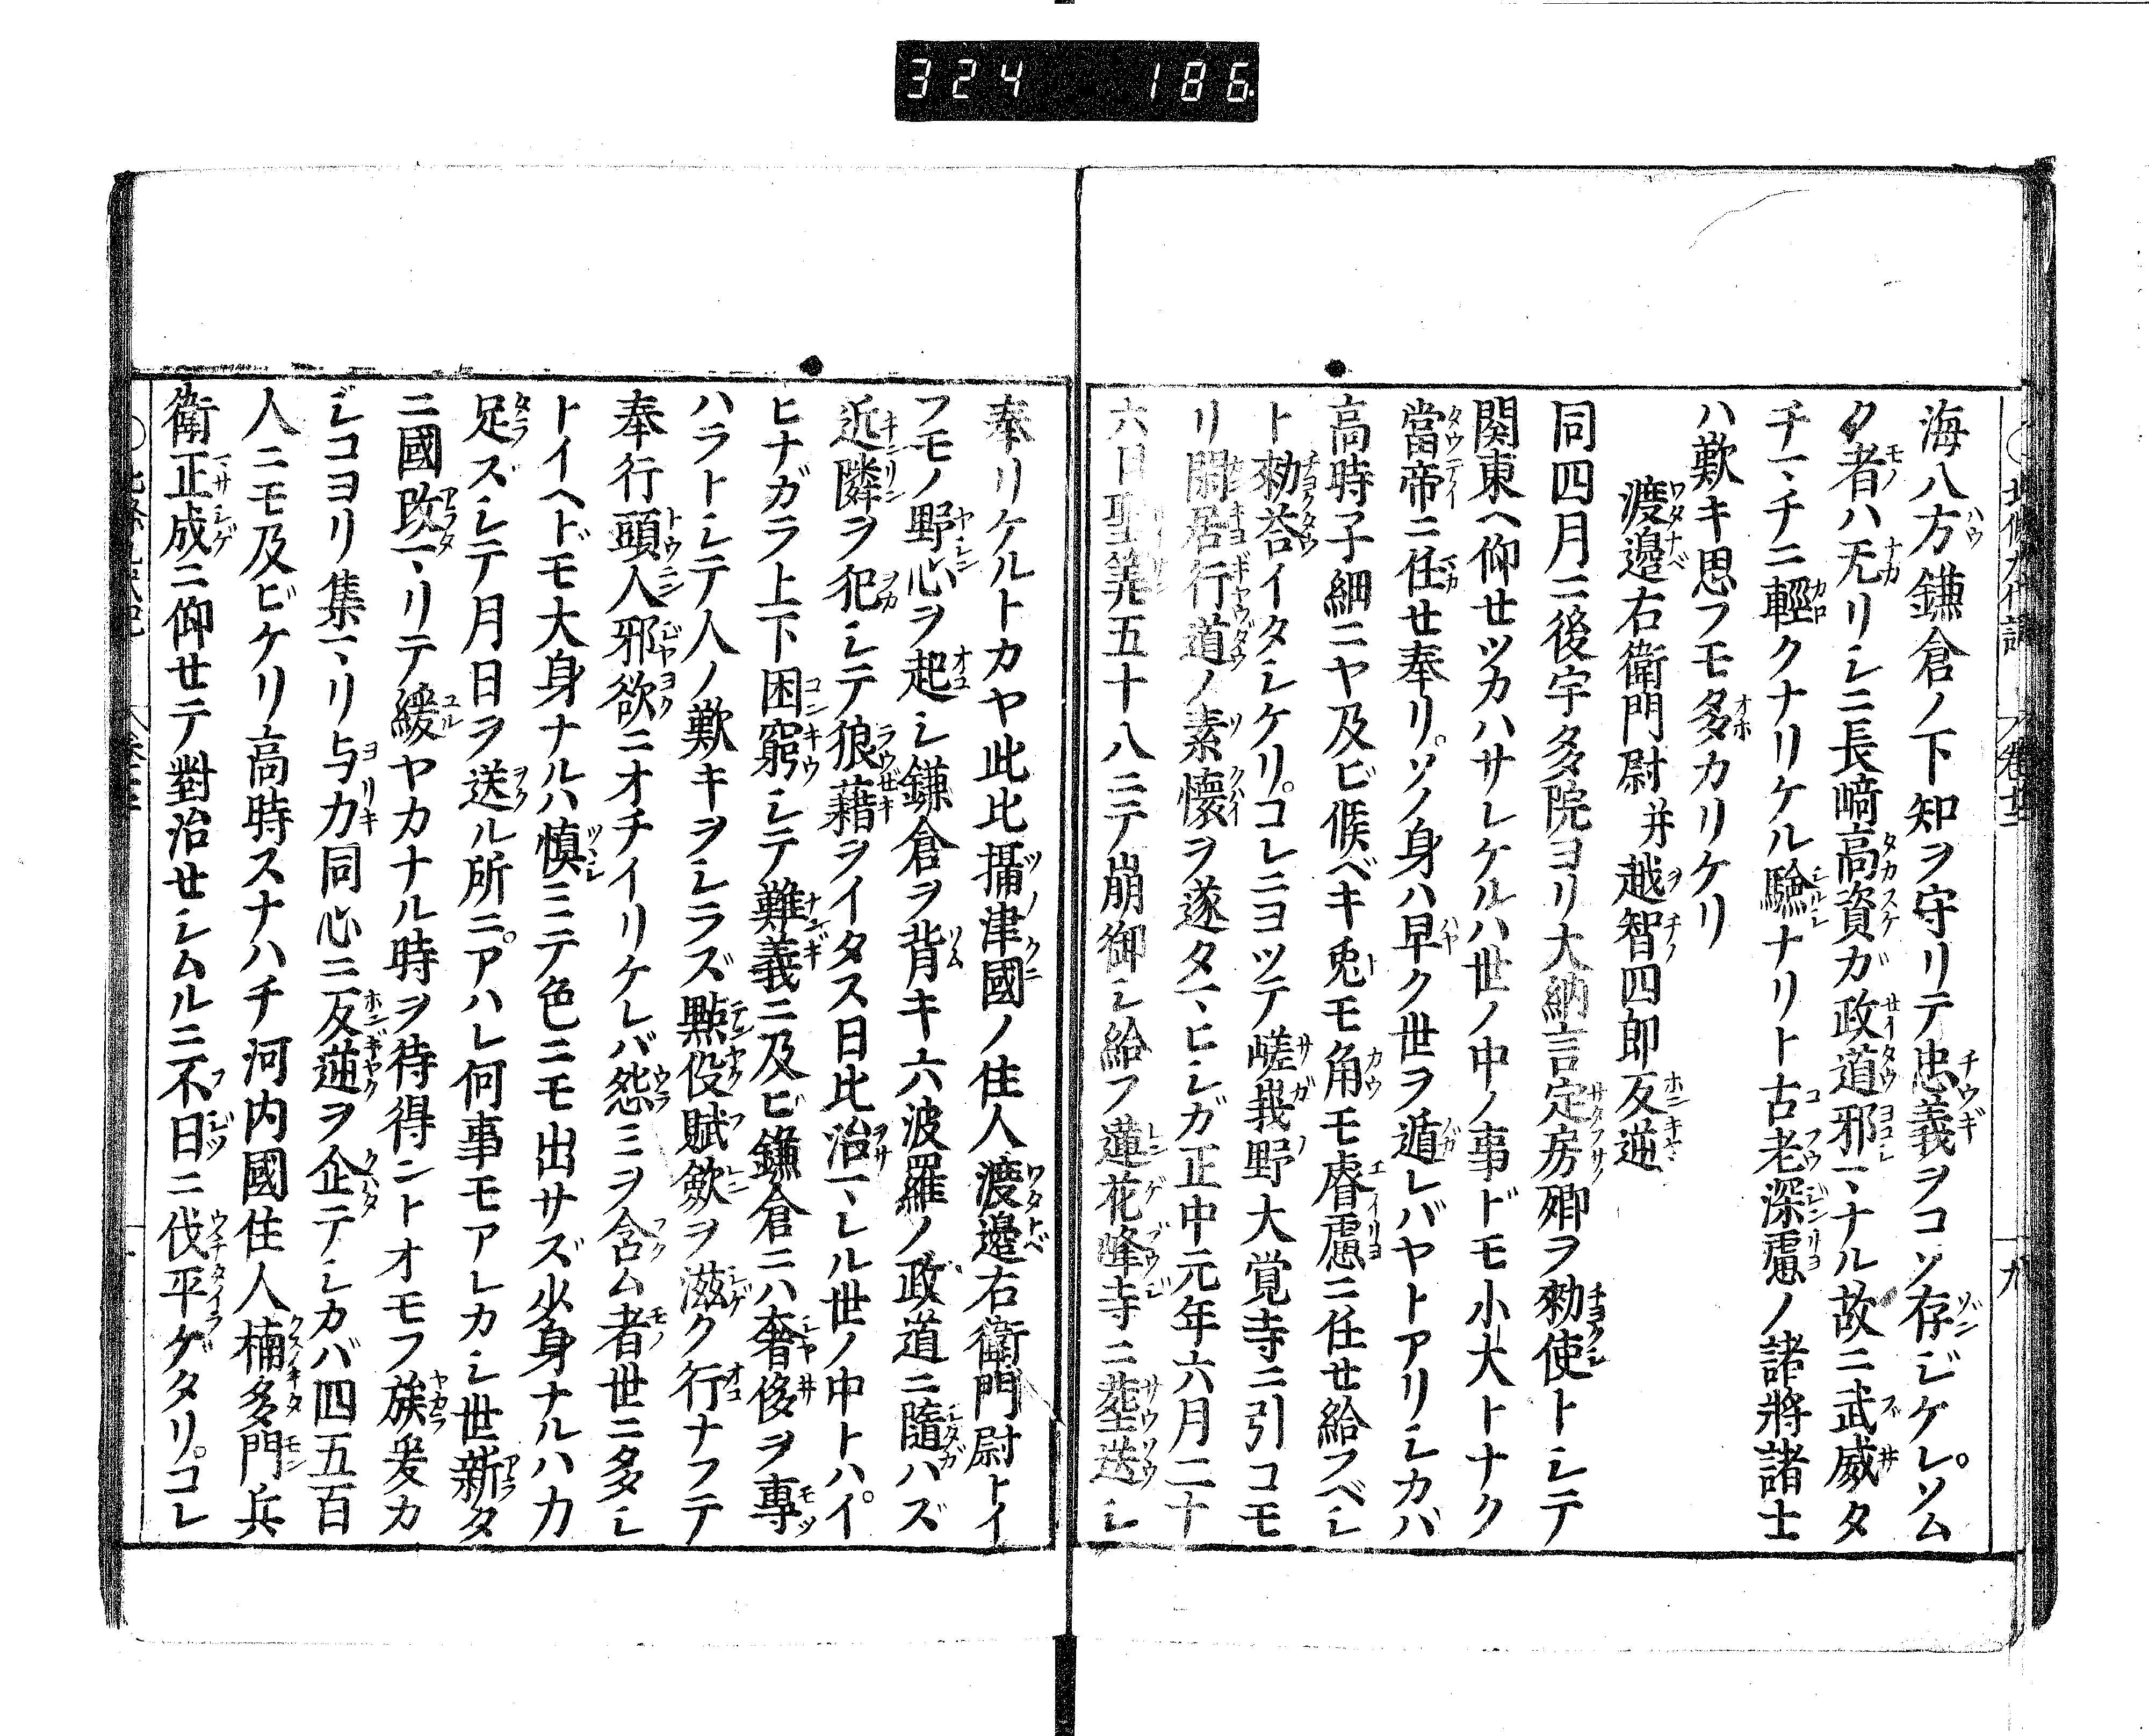 324 186
海八方鎌倉ノ下知ヲ守リテ忠義ヲコソ存ジケレソム
ク者ハ无カリシニ長﨑高資ガ政道邪マナル故ニ武威タ
チマチニ輕クナリケル驗ナリト古老深慮ノ諸將諸士
ハ歎キ思フモ多カリケリ
渡邉右衛門尉并越智四郎反逆
同四月ニ後宇多院ヨリ大納言定房卿ヲ勅使トシテ
関東ヘ仰セツカハサレケルハ世ノ中ノ事ドモ小大トナク
當帝ニ任セ奉リソノ身ハ早ク世ヲ遁レバヤトアリシカバ
高時子細ニヤ及ビ候ベキ兎モ角モ睿慮ニ任セ給フベシ
ト勅荅イタシケリコレニヨツテ嵯峩野大覚寺ニ引コモ
リ閑居行道ノ素懷ヲ遂タマヒシガ正中元年六月二十
六日聖筭五十八ニテ崩御シ給フ蓮花峰寺ニ葬送シ
奉リケルトカヤ此比攝津國ノ住人渡邉右衛門尉トイ
フモノ野心ヲ起シ鎌倉ヲ背キ六波羅ノ政道ニ隨ハズ
近隣ヲ犯シテ狼藉ヲイタス日比治マレル世ノ中トハイ
ヒナガラ上下困窮シテ難義ニ及ビ鎌倉ニハ奢侈ヲ專
ハラトシテ人ノ歎キヲシラズ點役賦歛ヲ滋ク行ナフテ
奉行頭人邪欲ニオチイリケレバ怨ミヲ含ム者世ニ多シ
トイヘドモ大身ナルハ慎ミテ色ニモ出サズ少身ナルハカ
足ズシテ月日ヲ送ル所ニアハレ何事モアレカシ世新タ
ニ國改マリテ緩ヤカナル時ヲ待得ントオモフ族爰カ
シコヨリ集マリ与力同心ニ反逆ヲ企テシカバ四五百
人ニモ及ビケリ高時スナハチ河内國住人楠多門兵
衛正成ニ仰セテ對治セシムルニ不日ニ伐平ゲタリコレ